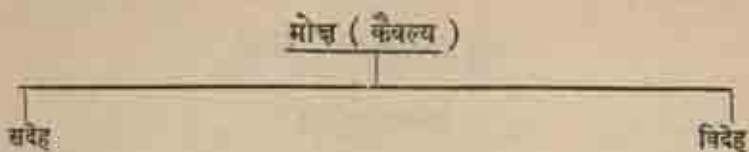 मोक्ष ( कैवल्य )
सदेह विदेह